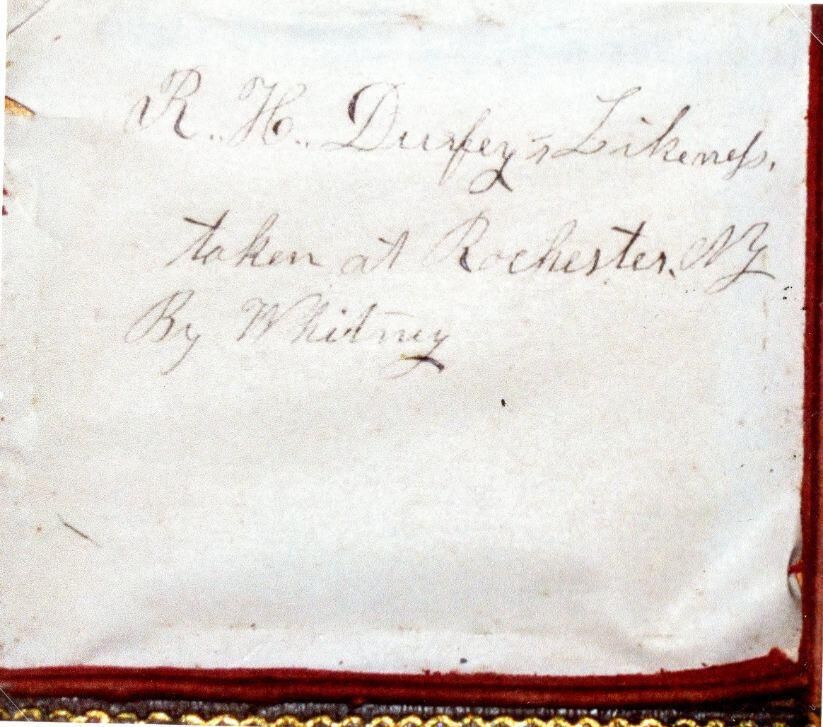 R. H. Durfey's Likeness.
taken at Rochester. NY
By Whitney